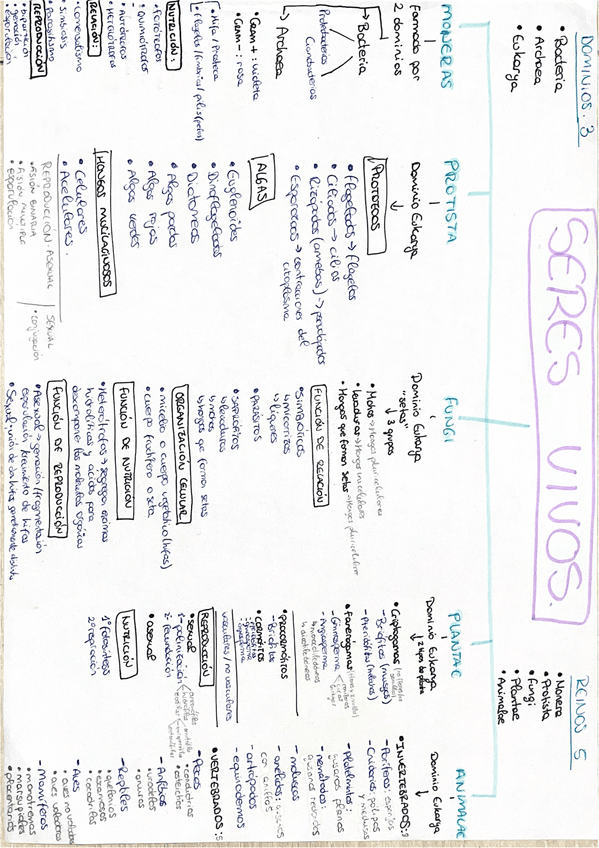 SERES VIVOS.
DOMINIOS: 3
• Bacteria
• Archaea
• Eukarya
REINOS 5
• Monera
• Protista
• Fungi
• Plantae
• Animalae
MONERAS
Formado por
2 dominios
→ Bacteria
Proteobacterias
Cianobacterias
• Gram + : violeta
• Gram - : rosa
→ Archaea
NUTRICIÓN:
RELACIÓN:
• comensalismo
• Simbiosis
• Parasitismo
REPRODUCCIÓN
• Bipartición
• gemación
• esporulación
PROTISTA
Dominio Eukarya
PROTOZOOS
• Flagelados → flagelos
• Ciliados → cilios
• Rizópodos (amebas) → pseudópodos
• Esporozoos → contracciones del
citoplasma
ALGAS
• Euglenoides
• Dinoflagelados
• Diatoneas
• Algas pardas
• Algas rojas
• Algas verdes
HONGOS MUCILAGINOSOS
• Celulares
• Acelulares.
REPRODUCCIÓN: ASEXUAL | SEXUAL
• FISIÓN BINARIA
• FISIÓN MULTIPLE
• Esporulación
• conjugación
FUNGI
Dominio Eukarya
"setas"
↓ 3 grupos
• Mohos → Hongos pluricelulares
• Levaduras → Hongos unicelulares
• Hongos que forman setas → Hongos pluricelulares
FUNCIÓN DE RELACIÓN
• Simbióticos
↳ micorrizas
↳ líquenes
• parásitos
• saprófitos
↳ mohos
↳ levaduras
↳ hongos que forman setas
ORGANIZACIÓN CELULAR
• micelio o cuerpo vegetativo (hifas)
• cuerpo fructífero o seta
FUNCIÓN DE NUTRICIÓN
• Heterótrofos → segregan enzimas
hidrolíticas y ácidos para
descomponer las moléculas orgánicas
FUNCIÓN DE REPRODUCCIÓN
• Asexual → gemación/fragmentación
esporulación, crecimiento de hifas
PLANTAE
Dominio Eukarya
↓ 2 tipos de planta
• Criptógamas
- Briofitas (musgos)
- Pteridofitas (helechos)
• Fanerógamas
- Gimnosperma
- Angiosperma
↳ monocotiledóneas
↳ dicotiledóneas
• protocormófitas
- Briofitas
• cormófitas
vasculares / no vasculares
REPRODUCCIÓN
• sexual
1º polinización
2º fecundación
• asexual
NUTRICIÓN
1º fotosíntesis
2º respiración
ANIMALAE
Dominio Eukarya
• INVERTEBRADOS:
- Poríferos: esponjas
- Cnidarios: pólipos
y medusas
- platelmintos:
gusanos planos
- nematodos:
gusanos redondos
- moluscos
- anélidos: gusanos
con anillos
- artrópodos
- equinodermos
• VERTEBRADOS: 5
- Peces
• condrictios
• osteictios
- Anfibios
• urodelos
• anuros
- Reptiles
• quelonios
• escamosos
• cocodrilos
- Aves
• aves no voladoras
• aves voladoras
- Mamíferos
• monotremas
• marsupiales
• placentarios